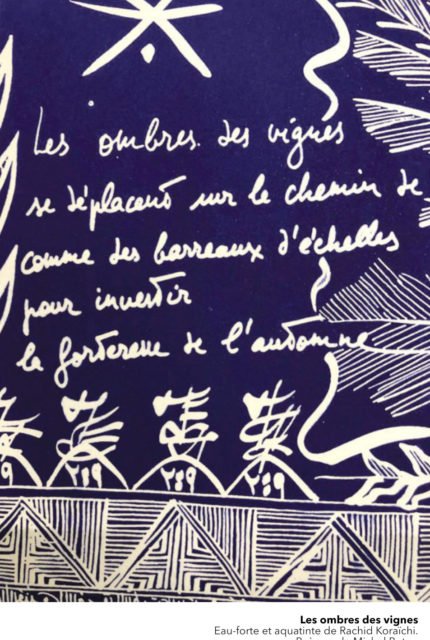 Les ombres des vignes
se déplacent sur le chemin de
comme des barreaux d'échelles
pour investir
la forteresse de l'automne
٢٨٩
٢٨٩
Les ombres des vignes
Eau-forte et aquatinte de Rachid Koraïchi.